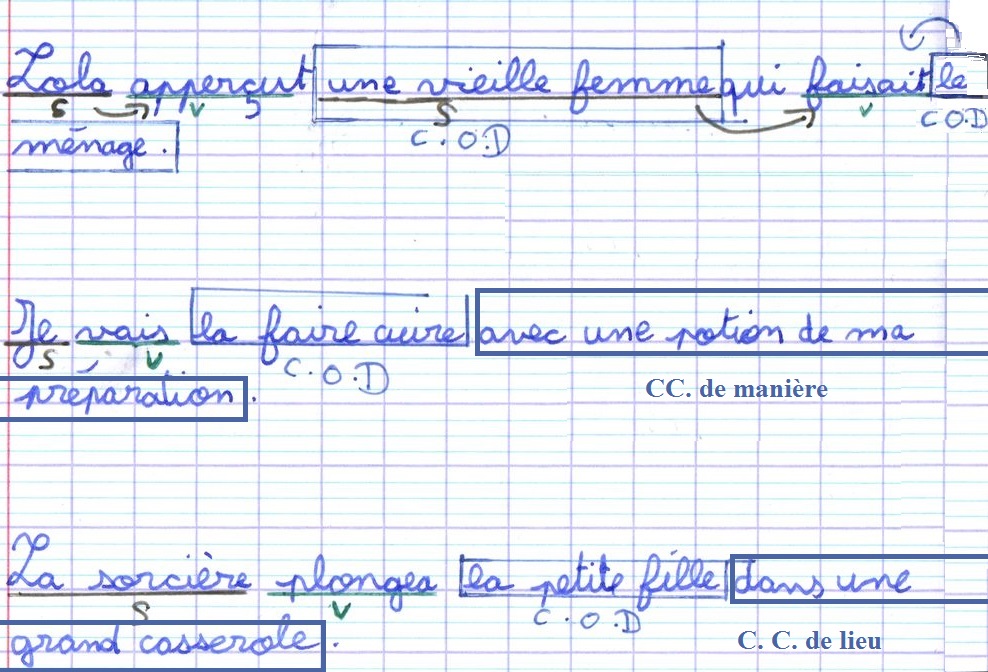 Lola apperçut une vieille femme qui faisait le
S V S V C.O.D
C.O.D
ménage.
Je vais la faire cuire avec une potion de ma
S V C.O.D
préparation. CC. de manière
La sorcière plongea la petite fille dans une
S V C.O.D
grand casserole. C. C. de lieu